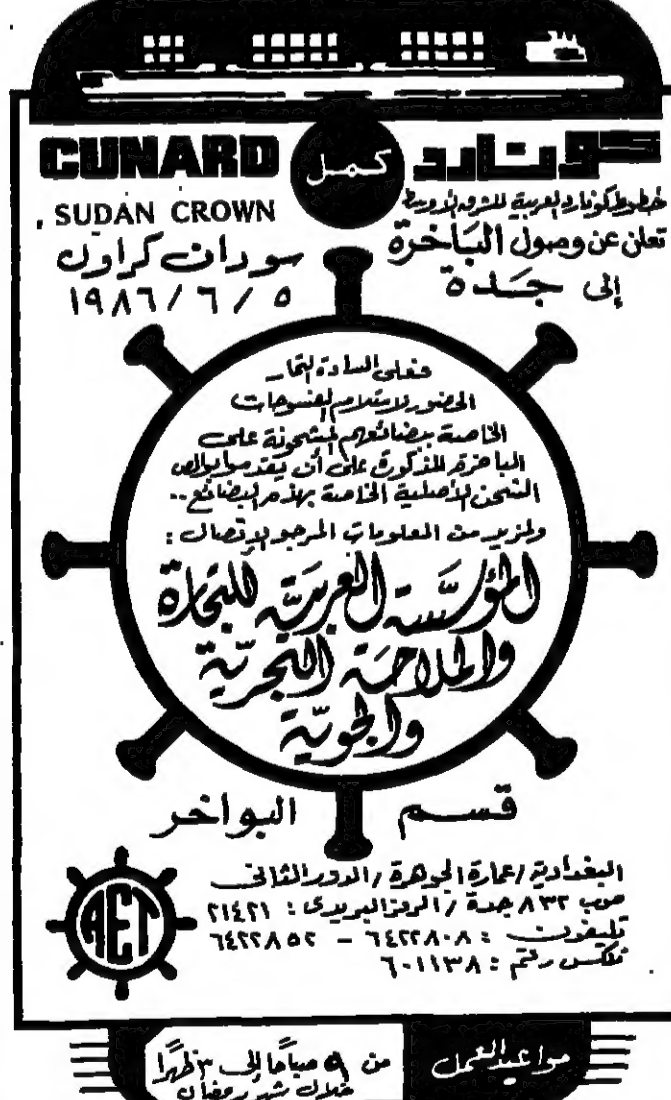 كونارد كمل CUNARD
خطوط كونارد العربية للشرق الأوسط
تعلن عن وصول الباخرة
SUDAN CROWN
سودان كراون
إلى جدة
١٩٨٦/٦/٥
فعلى السادة التجار
الحضور لاستلام الفسوحات
الخاصة ببضائعهم المشحونة على
الباخرة المذكورة على أن يقدموا بوالص
الشحن الأصلية الخاصة بهذه البضائع..
ولمزيد من المعلومات المرجو الاتصال:
المؤسسة العربية للتجارة
والملاحة البحرية
والجوية
قسم البواخر
البغدادية / عمارة الجوهرة / الدور الثاني
ص ب ٨٣٢ جدة / الرمز البريدي: ٢١٤٢١
تليفون: ٦٤٢٢٨٠٨ - ٦٤٢٢٨٥٢
تلكس رقم: ٦٠١١٣٨
AET
مواعيد العمل
من ٩ صباحا إلى ٣ ظهرا
خلال شهر رمضان